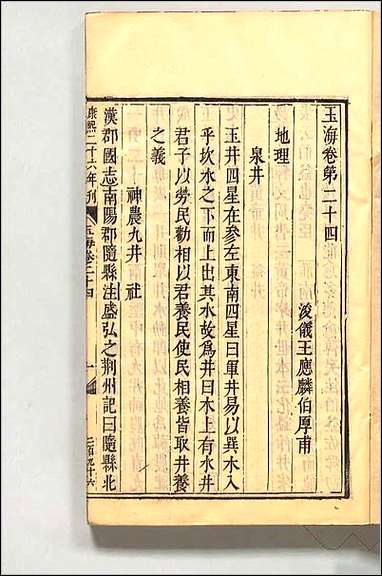 玉海卷第二十四
浚儀王應麟伯厚甫
地理
泉井
玉井四星在參左東南四星曰軍井易以巽木入
乎坎水之下而上出其水故爲井曰木上有水井
君子以勞民勸相以君養民使民相養皆取井養
之義
神農九井 社
漢郡國志南陽郡隨縣注盛弘之荆州記曰隨縣北
康熙二十六年刋
玉海卷二十四
一
二百九十六